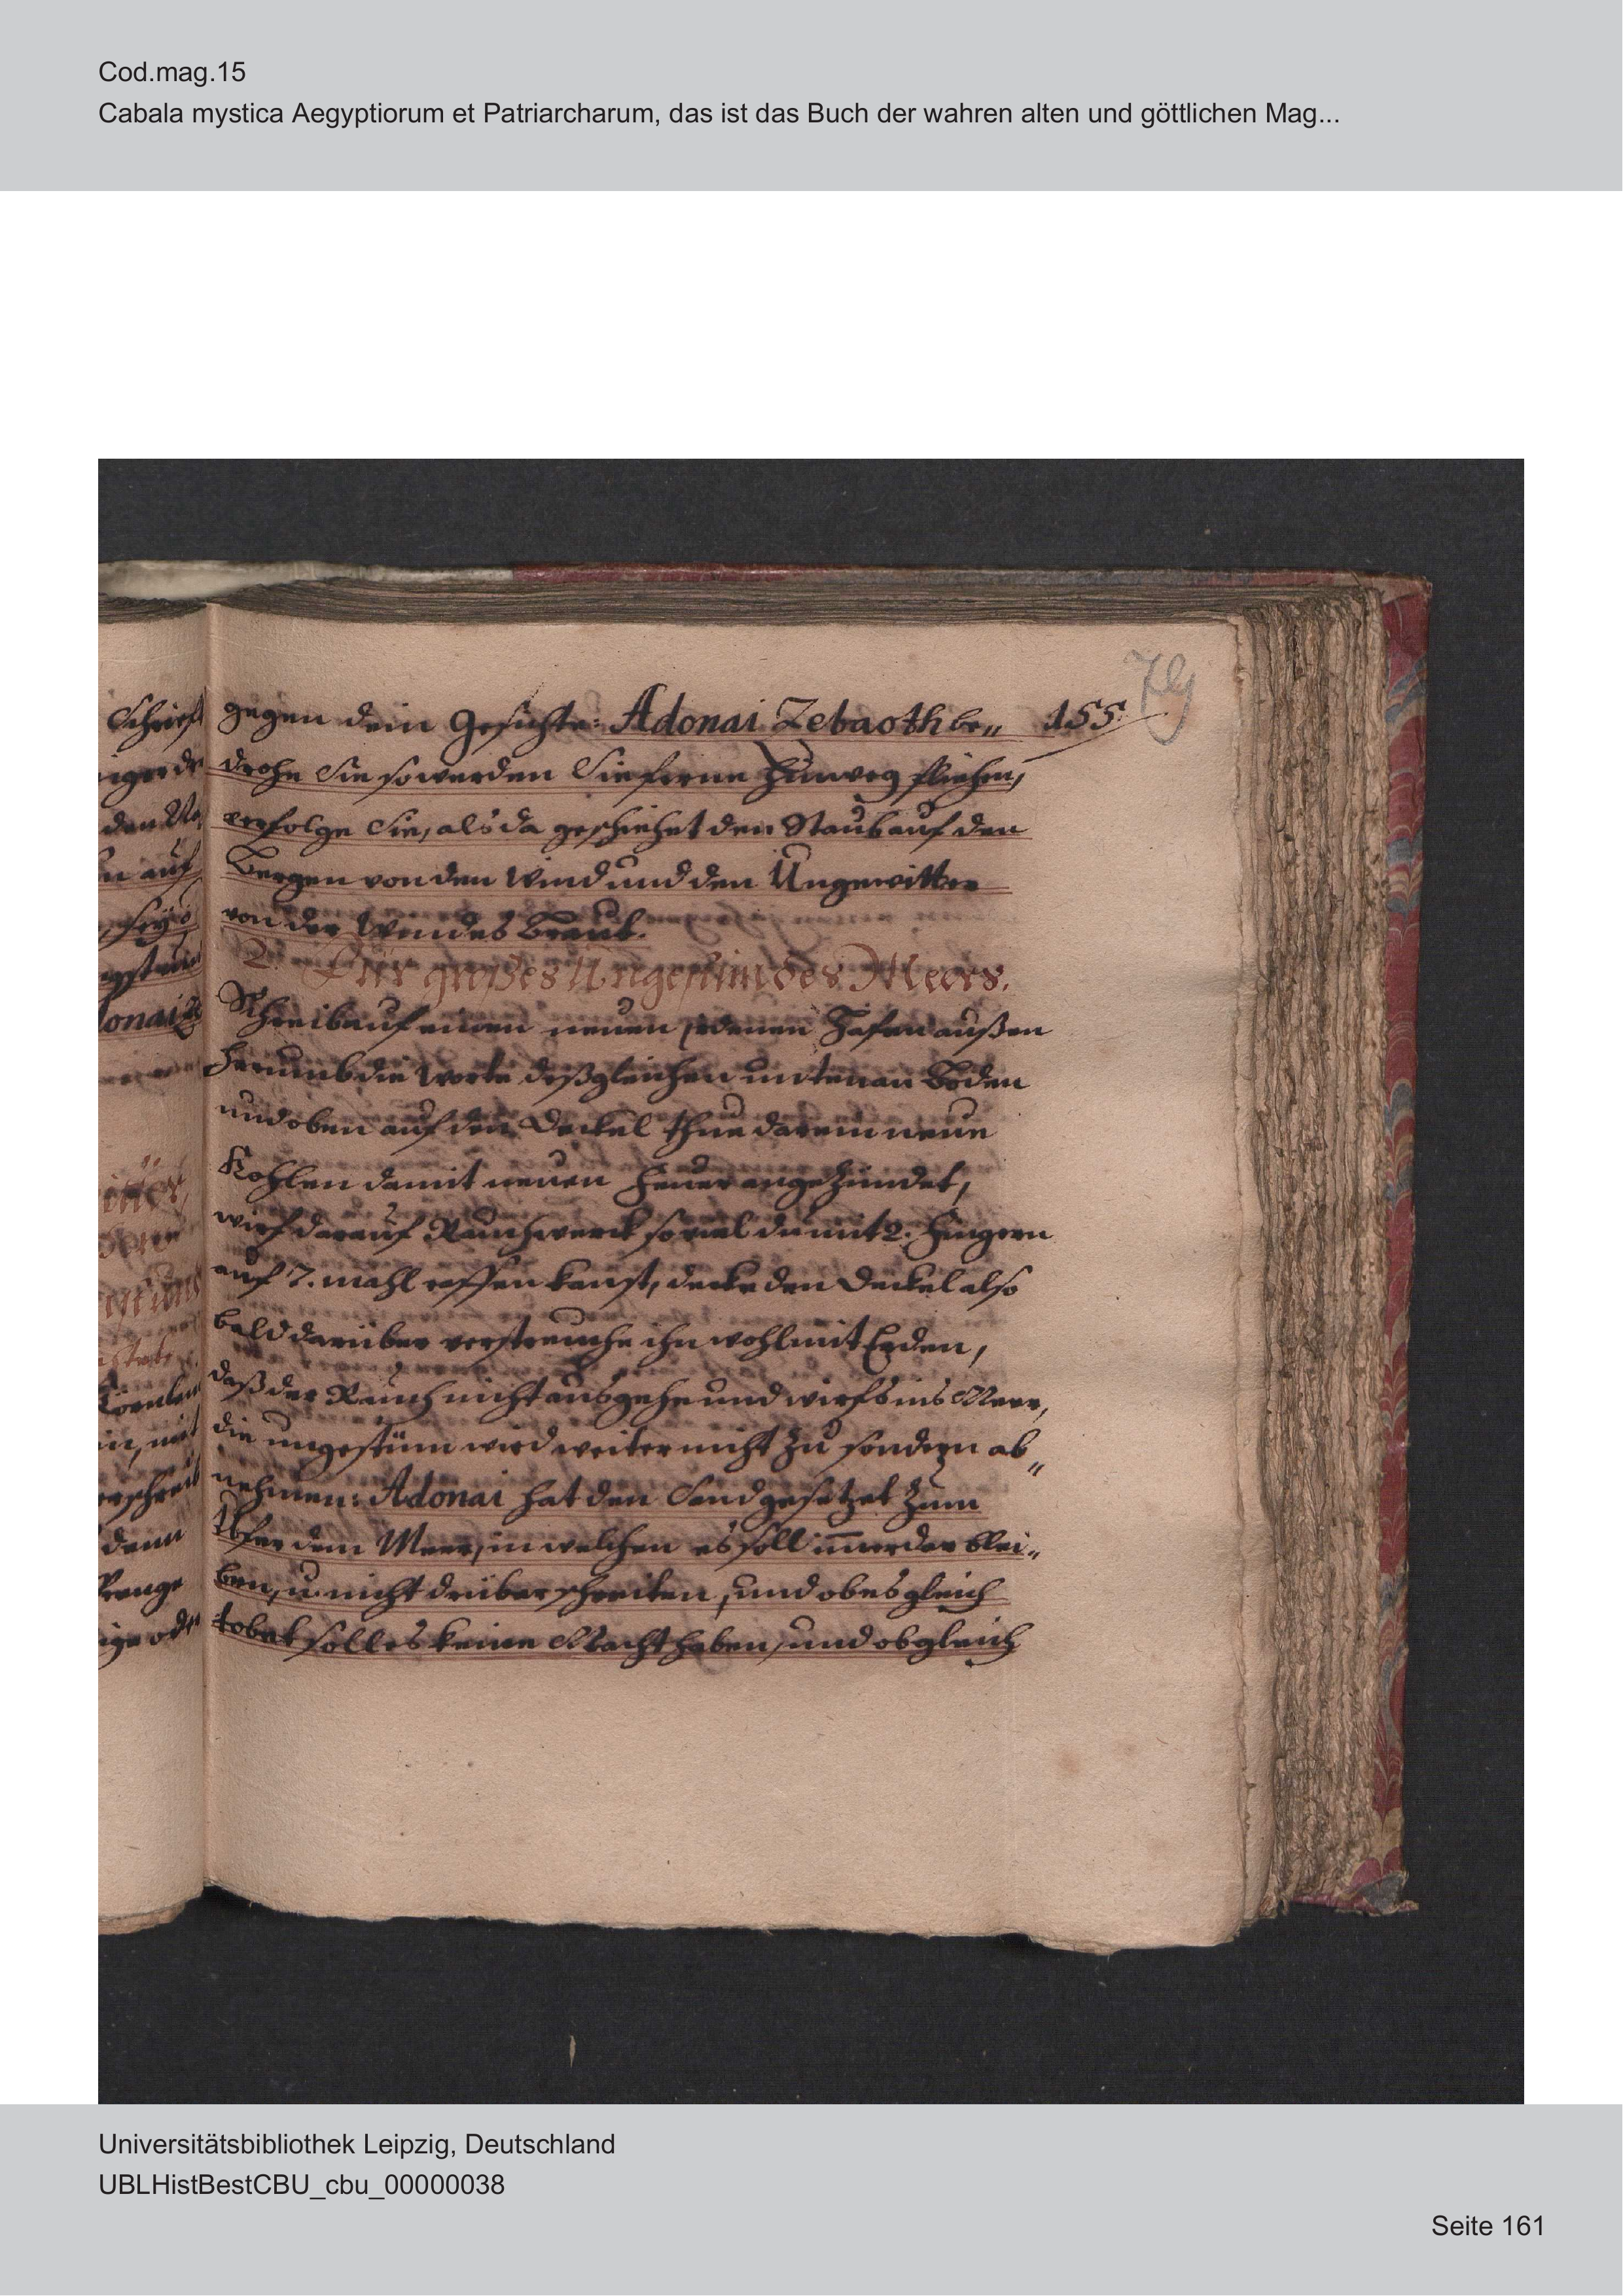 Cod.mag.15
Cabala mystica Aegyptiorum et Patriarcharum, das ist das Buch der wahren alten und göttlichen Mag...
79
155.
gegen dein Gesichte: Adonai Zebaoth be„
drohe Sie so werden Sie ferne hinweg fliehen,
verfolge Sie, als da geschiehet den Staub auf den
Bergen von den Wind und den Ungewitter
von der Windes Braut.
2. Für großes Ungestüm des Meers.
Schreib auf einen neuen irdenen Hafen außen
herumb die Worte deßgleichen unten an Boden
und oben auf den Deckel thue darein neue
Kohlen damit neuen Feuer angezündet,
wirf darauf Rauchwerck so viel du mit 2. Fingern
auf 7. mahl fassen kanst, decke den Deckel also
bald darüber verstreiche ihn wohl mit Erden,
daß der Rauch nicht ausgehe und wirfs ins Meer,
die ungestüm wird weiter nicht zu sondern ab„
nehmen: Adonai hat den Sand gesetzet zum
Ufer dem Meer, in welchen es soll im̅erdar blei„
ben, u. nicht drüber schreiten, und ob es gleich
tobet soll es keine Macht haben, und ob gleich
Universitätsbibliothek Leipzig, Deutschland
UBLHistBestCBU_cbu_00000038
Seite 161